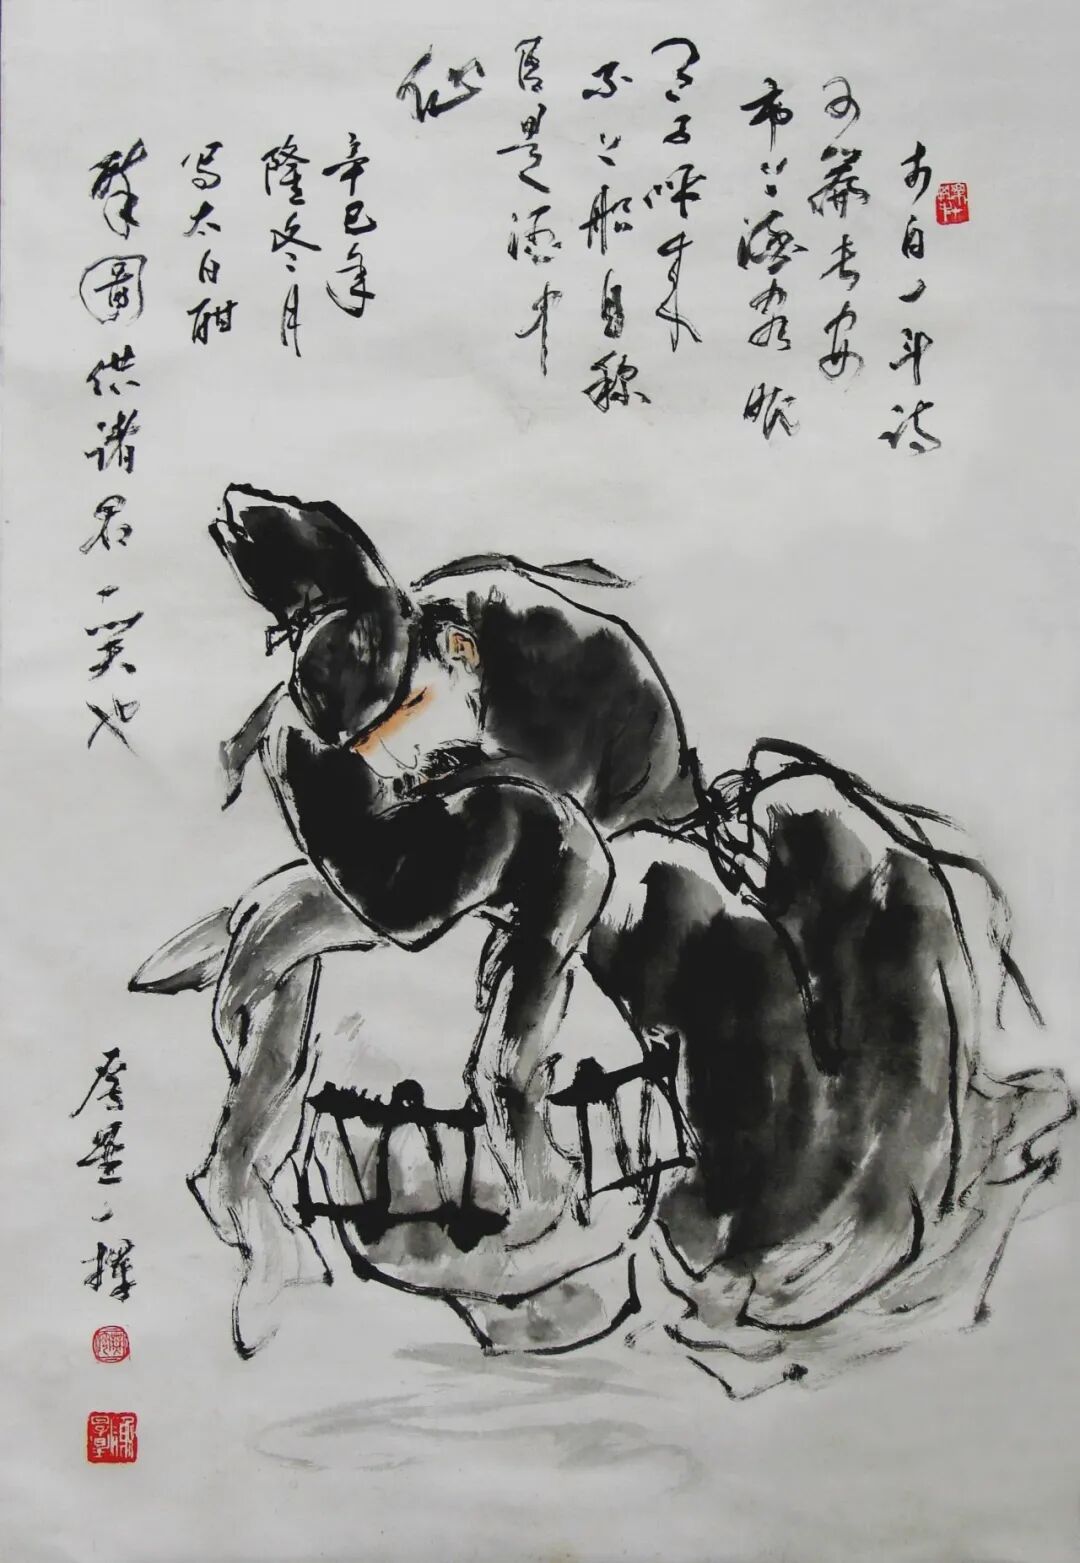 李白一斗诗
百篇长安
市上酒家眠
天子呼来
不上船自称
臣是酒中
仙
辛巳年
隆冬月
写太白酣
醉图供诸君一笑也
一挥